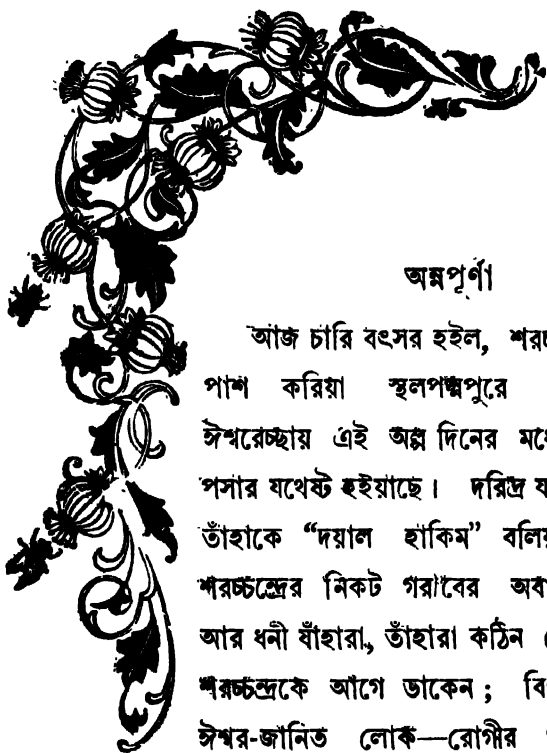 অন্নপূর্ণা
আজ চারি বৎসর হইল, শরচ
পাশ করিয়া স্থলপদ্মপুরে
ঈশ্বরেচ্ছায় এই অল্প দিনের মধ্যে
পসার যথেষ্ট হইয়াছে। দরিদ্র য
তাঁহাকে “দয়াল হাকিম” বলিয়
শরচ্চন্দ্রের নিকট গরীবের অবা
আর ধনী যাঁহারা, তাঁহারা কঠিন
শরচ্চন্দ্রকে আগে ডাকেন ; বি
ঈশ্বর-জানিত লোক—রোগীর